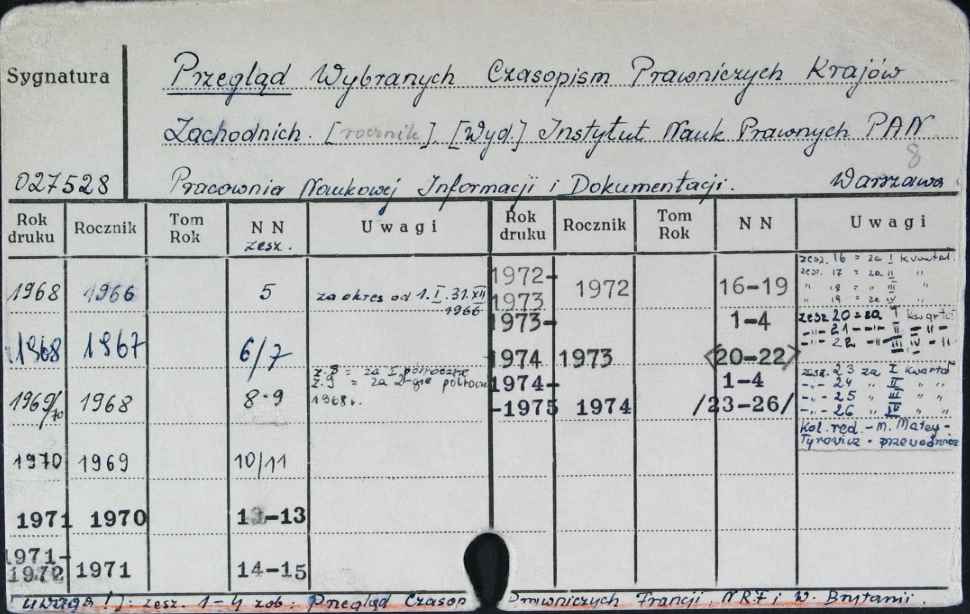 Sygnatura
Przegląd Wybranych Czasopism Prawniczych Krajów
Zachodnich. [rocznik]. [Wyd.] Instytut Nauk Prawnych PAN
8
027528 Pracownia Naukowej Informacji i Dokumentacji. Warszawa.
Rok druku Rocznik Tom Rok N N zesz. Uwagi Rok druku Rocznik Tom Rok N N Uwagi
1968 1966 5 za okres od 1.I.31.XII 1966
1968 1967 6/7
z.8 = za I półrocze
z.9 = za 2-gie półrocze
1968r.
1969/70 1968 8-9
1970 1969 10/11
1971 1970 13-13
1971-1972 1971 14-15
1972-1973 1972 16-19
zesz. 16 = za I kwartał.
zesz. 17 = za II " "
" 18 = za III " "
" 19 = za IV " "
1973-1974 1973 1-4 <20-22>
zesz 20 = za I kwartał
-"- 21 -"- II -"-
-"- 22 -"- III IV -"-
1974-1975 1974 1-4 /23-26/
zesz. 23 za I kwartał
-"- 24 " II " "
-"- 25 " III " "
-"- 26 " IV " "
Kol. red. - M. Matey-
Tyrowicz - przewodnicz
[uwaga!]: zesz. 1-4 zob: Przegląd Czasop Prawniczych Francji, NRF i W. Brytanii.